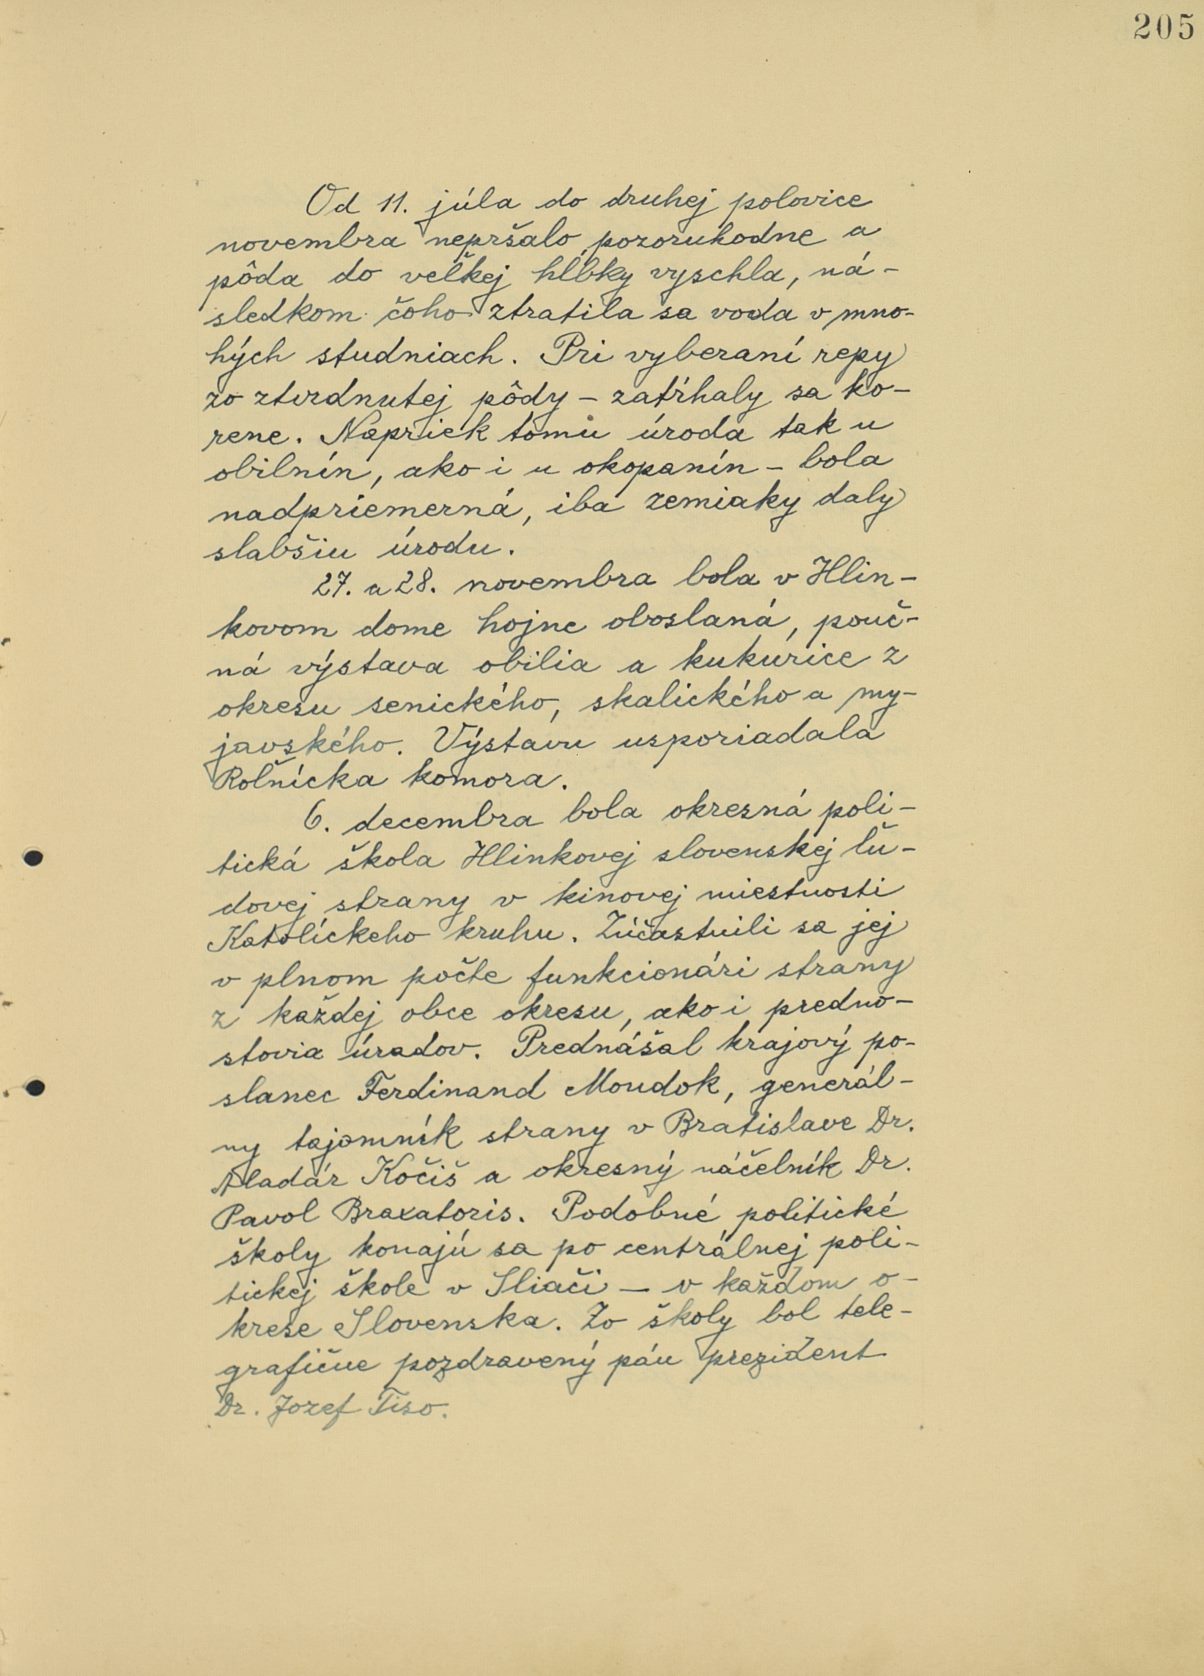 205
Od 11. júla do druhej polovice
novembra nepršalo pozoruhodne a
pôda do veľkej hĺbky vyschla, ná-
sledkom čoho ztratila sa voda v mno-
hých studniach. Pri vyberaní repy
zo ztvrdnutej pôdy – zatŕhaly sa ko-
rene. Napriek tomu úroda tak u
obilnín, ako i u okopanín – bola
nadpriemerná, iba zemiaky daly
slabšiu úrodu.
27. a 28. novembra bola v Hlin-
kovom dome hojne oboslaná, pouč-
ná výstava obilia a kukurice z
okresu senického, skalického a my-
javského. Výstavu usporiadala
Roľnícka komora.
6. decembra bola okresná poli-
tická škola Hlinkovej slovenskej ľu-
dovej strany v kinovej miestnosti
Katolíckeho kruhu. Zúčastnili sa jej
v plnom počte funkcionári strany
z každej obce okresu, ako i predno-
stovia úradov. Prednášal krajový po-
slanec Ferdinand Mondok, generál-
ny tajomník strany v Bratislave Dr.
Aladár Kočiš a okresný náčelník Dr.
Pavol Braxatoris. Podobné politické
školy konajú sa po centrálnej poli-
tickej škole v Sliači – v každom o-
krese Slovenska. Zo školy bol tele-
grafične pozdravený pán prezident
Dr. Jozef Tiso.